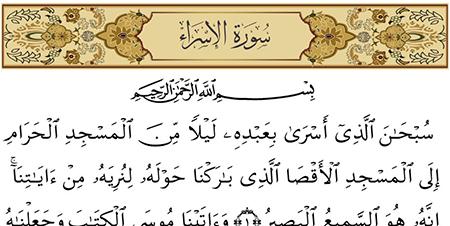 سُورَةُ الإِسْرَاءِ
بِسْمِ ٱللَّهِ ٱلرَّحْمَٰنِ ٱلرَّحِيمِ
سُبْحَٰنَ ٱلَّذِىٓ أَسْرَىٰ بِعَبْدِهِۦ لَيْلًا مِّنَ ٱلْمَسْجِدِ ٱلْحَرَامِ
إِلَى ٱلْمَسْجِدِ ٱلْأَقْصَا ٱلَّذِى بَٰرَكْنَا حَوْلَهُۥ لِنُرِيَهُۥ مِنْ ءَايَٰتِنَآ ۚ
إِنَّهُۥ هُوَ ٱلسَّمِيعُ ٱلْبَصِيرُ ﴿١﴾ وَءَاتَيْنَا مُوسَى ٱلْكِتَٰبَ وَجَعَلْنَٰهُ